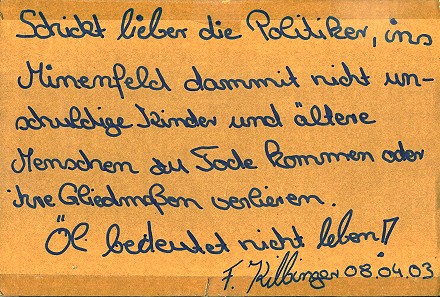 Schickt lieber die Politiker, ins
Minenfeld dammit nicht un-
schuldige Kinder und ältere
Menschen zu Tode kommen oder
ihre Gliedmaßen verlieren.
Öl bedeutet nicht leben!
F. Kilbinger 08.04.03